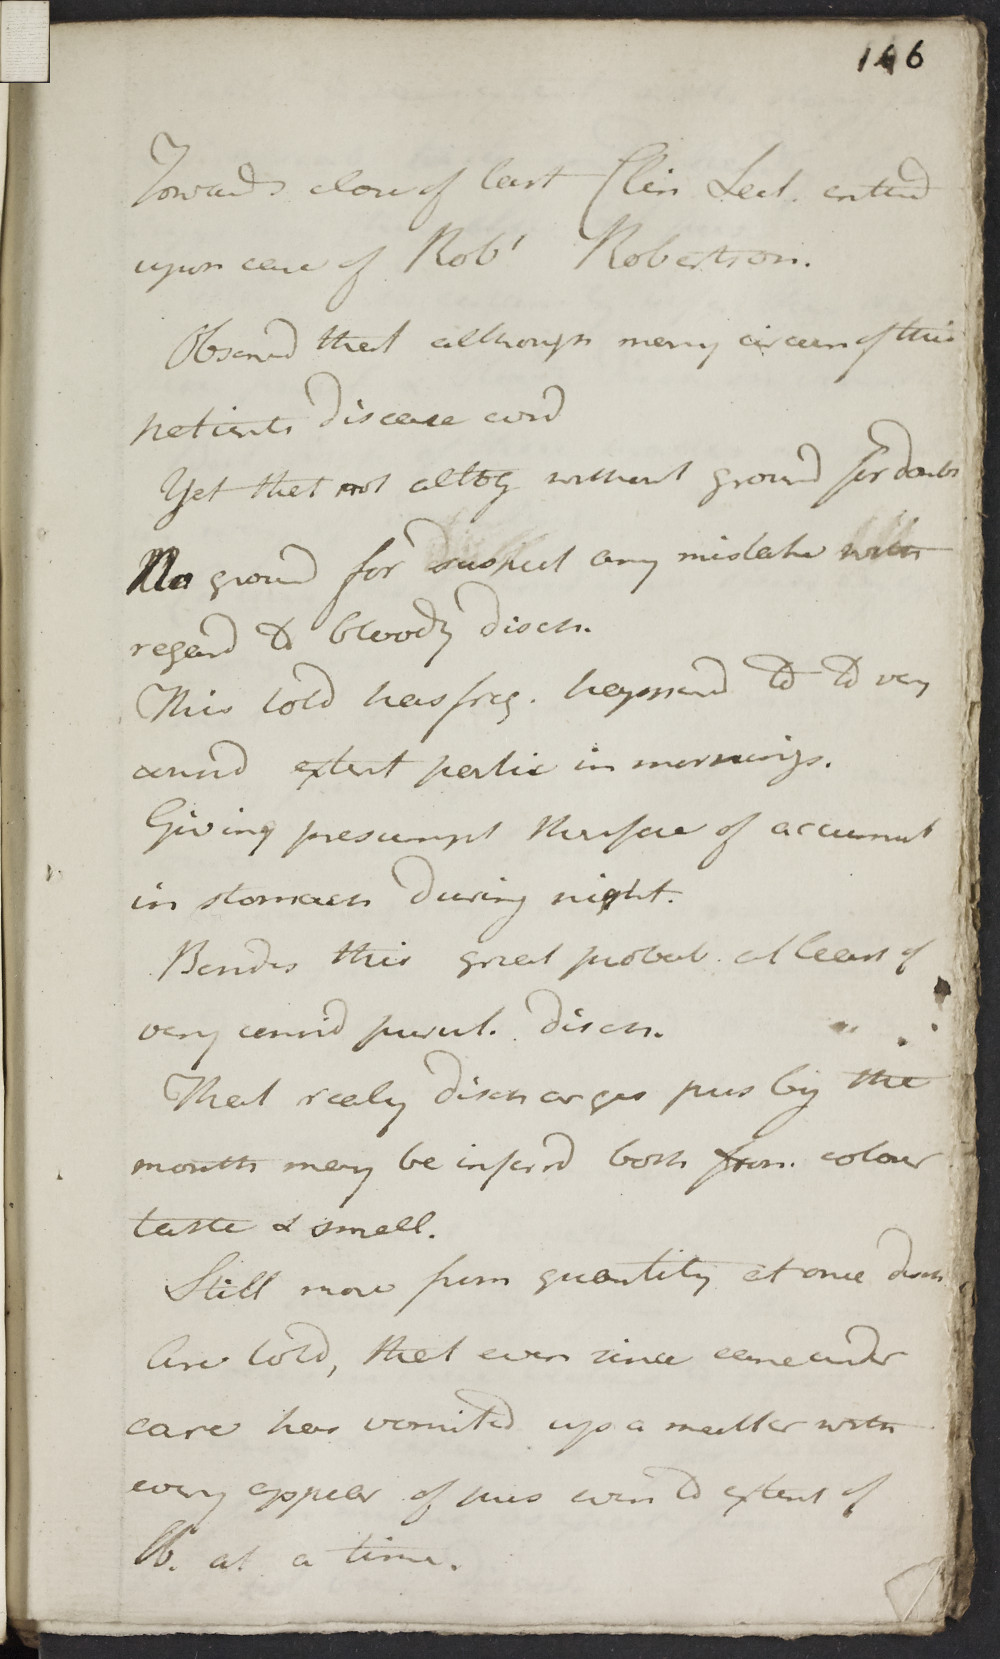 166
Towards close of last Clin Lect. enterd
upon case of Robt Robertson.
Observd that although many circum of this
patients disease evid
Yet that not altog without ground for doubt
No ground for suspect any mistake with
regard to bloody disch.
This told has freq. happend to very
consid extent partic in mornings.
Giving presumpt therefore of accumul
in stomach during night.
Besides this great probab. at least of
very consid purul. disch.
That realy discharges pus by the
mouth may be inferrd both from colour
taste & smell.
Still more from quantity at once disch
Are told, that even since came under
care has vomited up a matter with
every appear of pus even to extent of
lb. at a time.